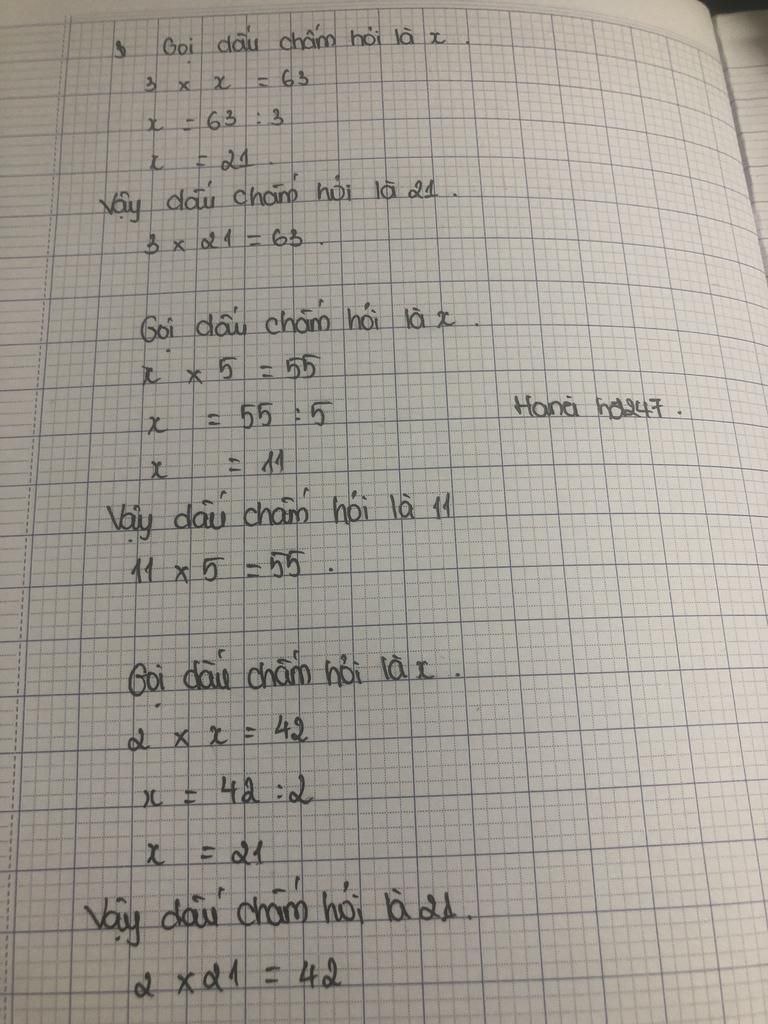 Gọi dấu chấm hỏi là x.
3 x x = 63
x = 63 : 3
x = 21.
Vậy dấu chấm hỏi là 21.
3 x 21 = 63.
Gọi dấu chấm hỏi là x.
x x 5 = 55
x = 55 : 5
x = 11
Vậy dấu chấm hỏi là 11
11 x 5 = 55.
Gọi dấu chấm hỏi là x.
2 x x = 42
x = 42 : 2
x = 21
Vậy dấu chấm hỏi là 21.
2 x 21 = 42